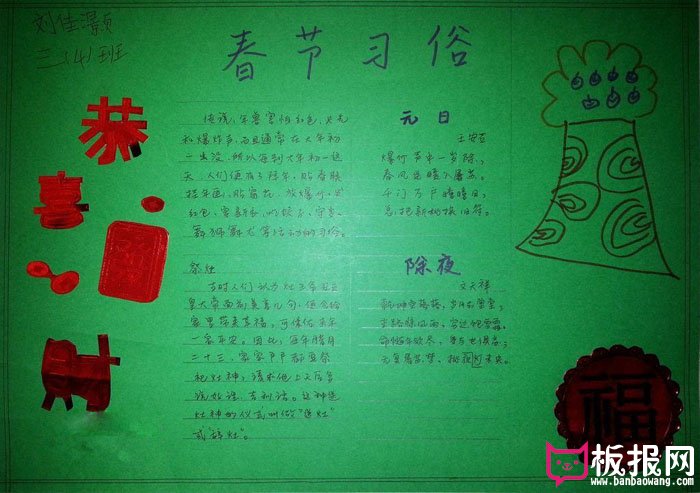 刘佳灏
三(4)班
春节习俗
恭
喜
传说,年兽害怕红色、火光
和爆炸声,而且通常在大年初
一出没,所以每到大年初一这
天,人们便有了拜年、贴春联
挂年画、贴窗花、放爆竹、发
红包、穿新衣、吃饺子、守岁、
舞狮舞龙等活动和习俗。
祭灶
皇大帝面前
一家平安。因此,每年腊月
二十三,家家户户都要祭
祀灶神,请求他上天后多
说好话、吉利话。这种送
灶神的仪式叫做“送灶”
或“辞灶”。
元日
王安石
爆竹声中一岁除,
春风送暖入屠苏。
千门万户曈曈日,
总把新桃换旧符。
除夜
文天祥
乾坤空落落,岁月去堂堂;
末路惊风雨,穷边饱雪霜。
命随年欲尽,身与世俱忘;
无复屠苏梦,挑灯夜未央。
福
板报网
www.banbaowang.com